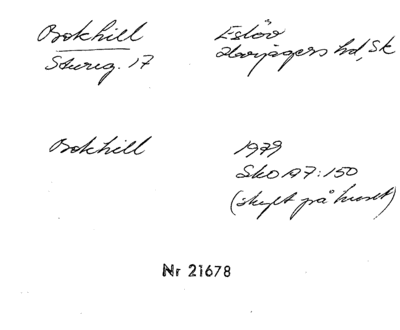 Bokhill
Eslöv
Storg. 17
Harjagers hd, Sk
Bokhill
1979
Sko A7:150
(skylt på huset)
Nr 21678